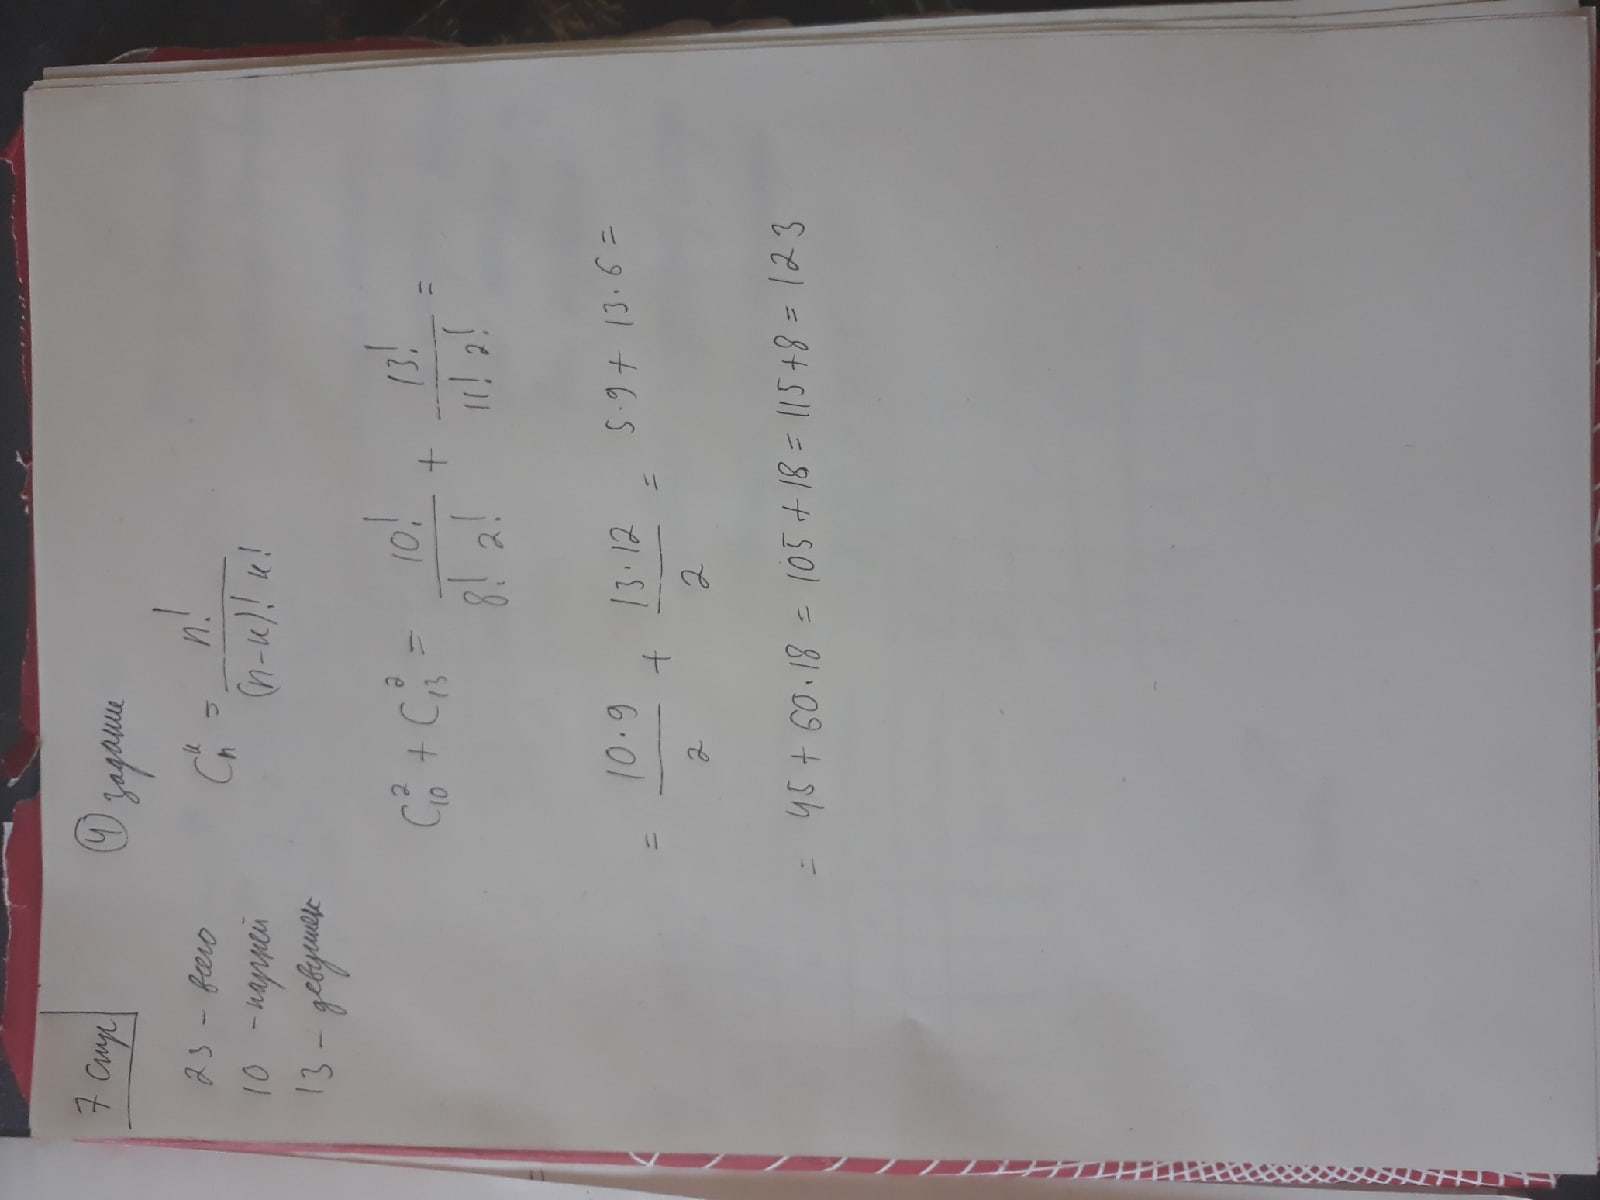 7 стр
④ задание
23 – всего
10 – парней
13 – девушек
C_n^к = n! / (n-к)! к!
C_10^2 + C_13^2 = 10! / 8! 2! + 13! / 11! 2! =
= 10·9 / 2 + 13·12 / 2 = 5·9 + 13·6 =
= 45 + 60·18 = 105 + 18 = 115+8 = 123